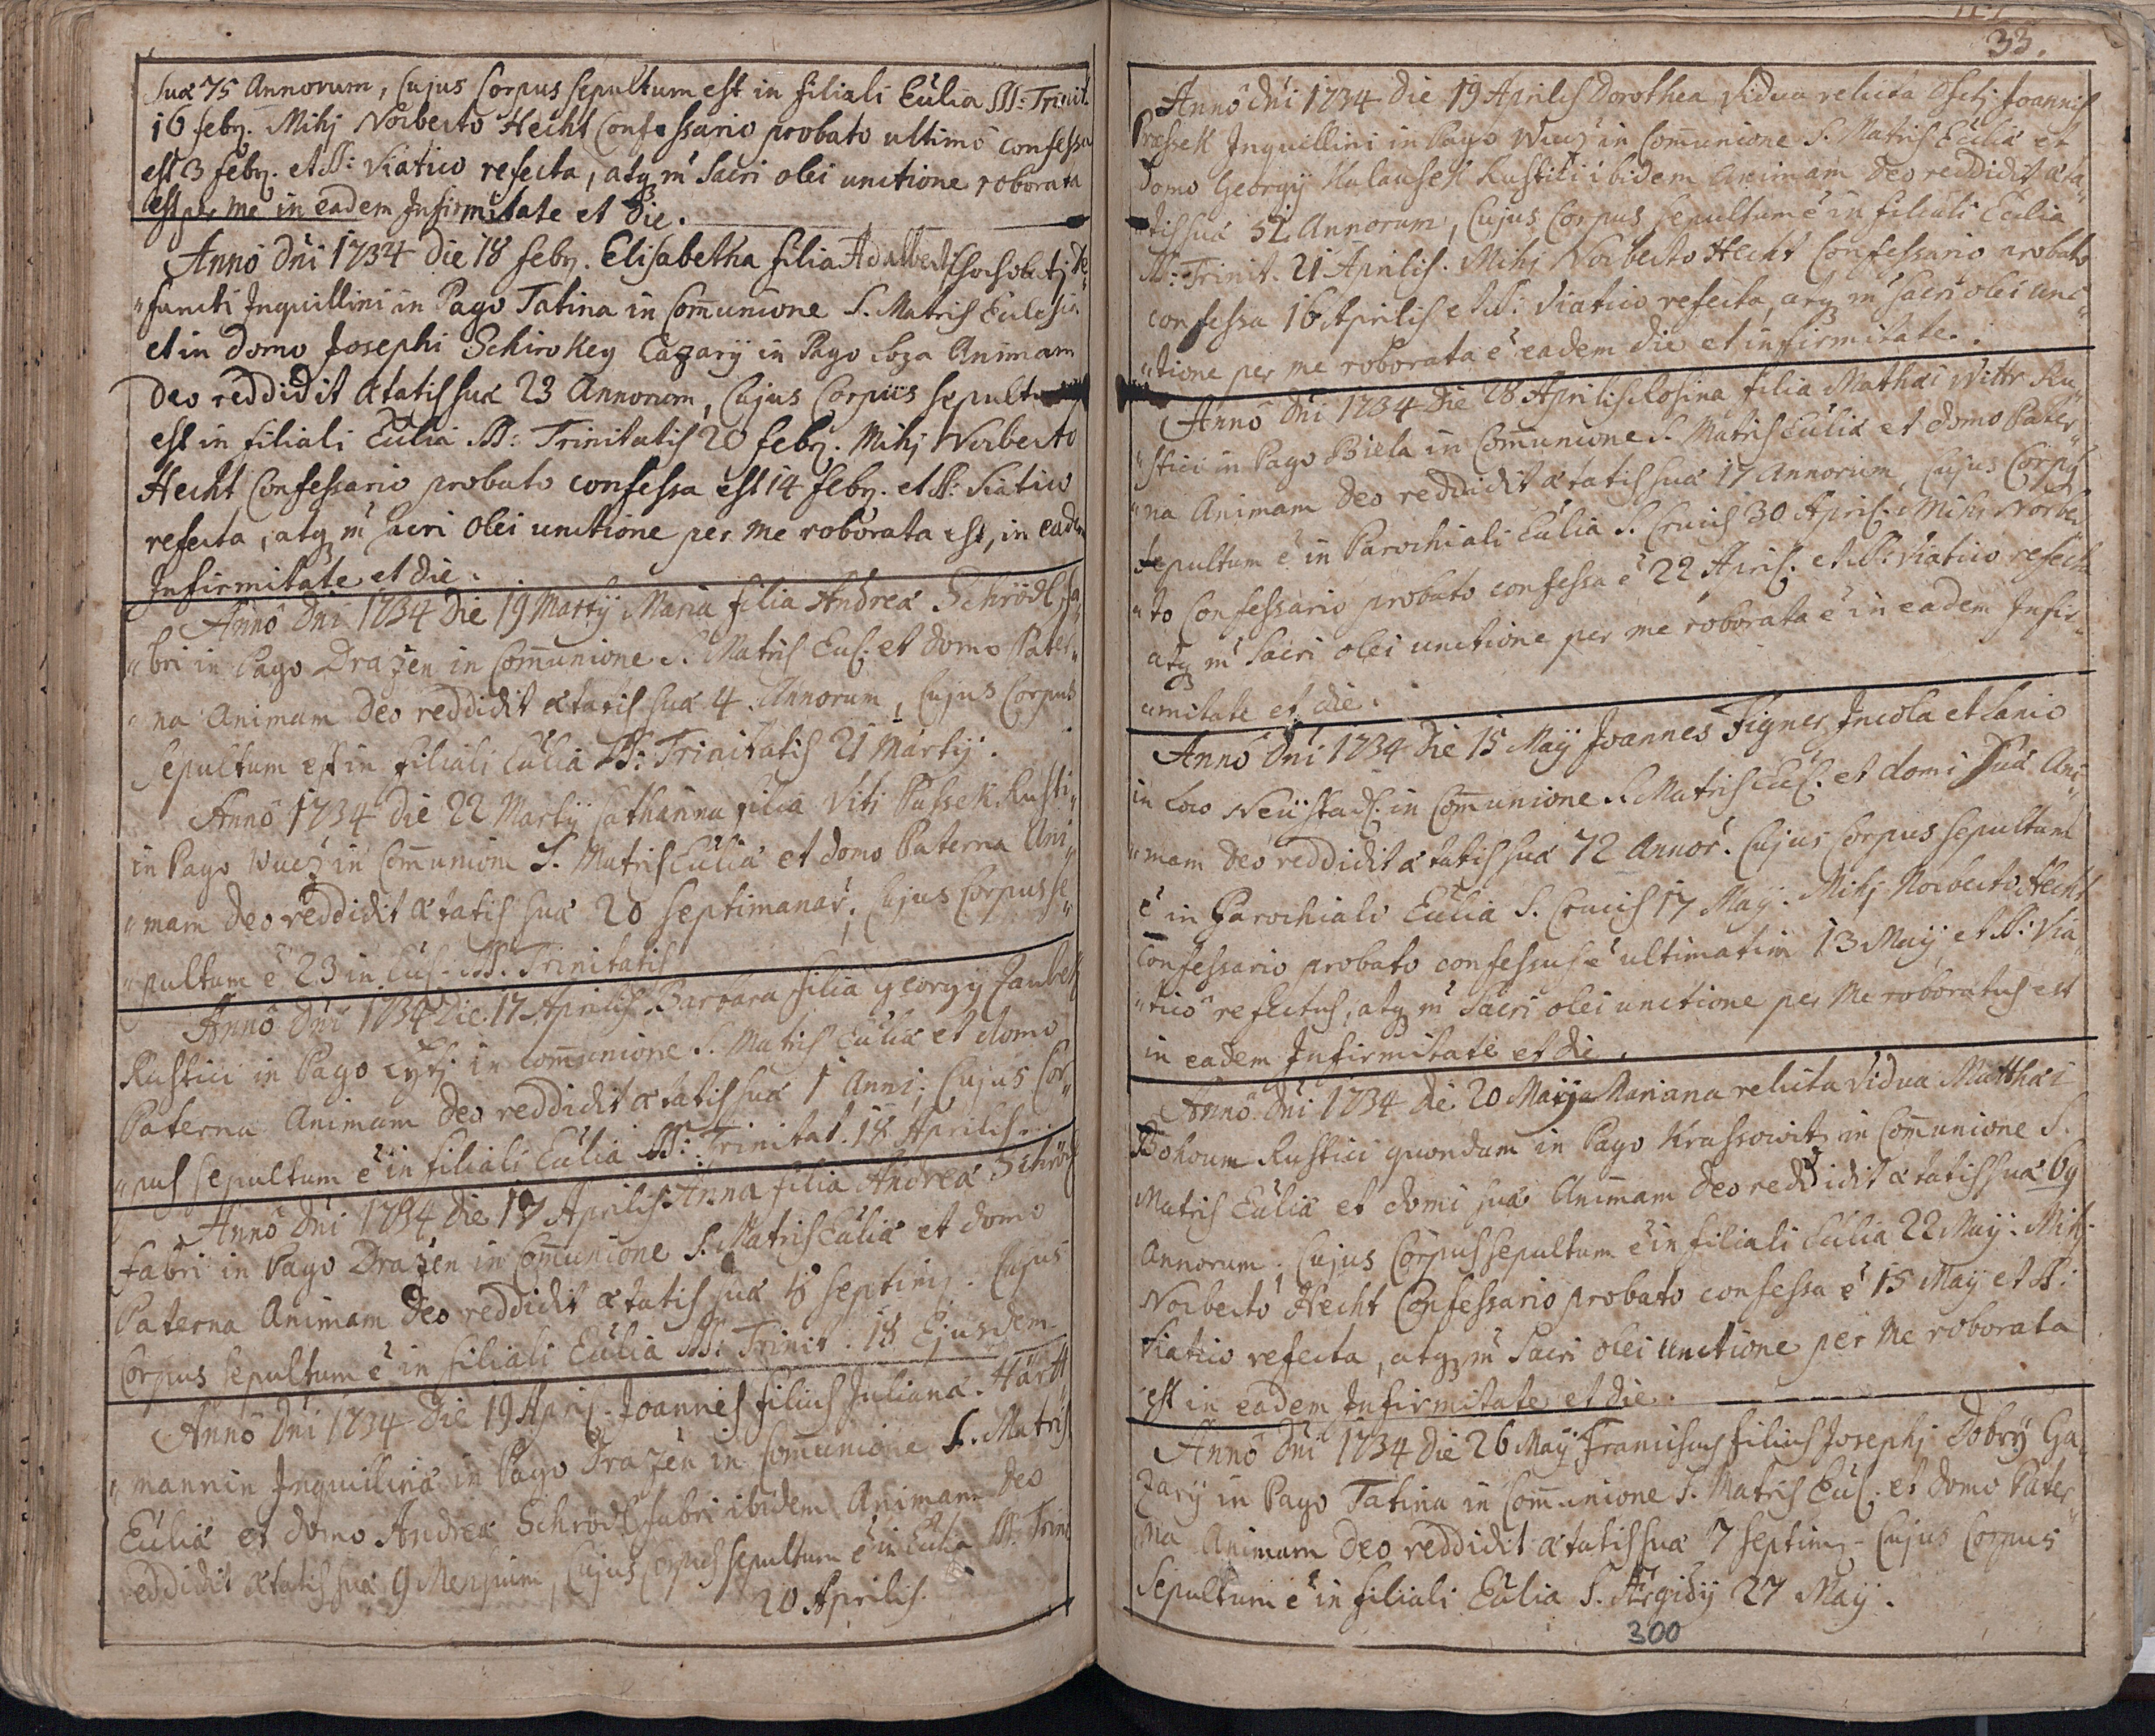 suæ 75 Annorum, Cujus Corpus sepultum est in filiali Eccľia SS: Trinit.
16 febr. Mihj Norberto Hecht Confessario probato ultimo confessa
est 3 febr. et SS: Viatico refecta, atq m̃ Sacri olei unctione roborata
est per me in eadem Infirmitate et die.
Anno Dni 1734 Die 18 febr. Elisabetha filia Adalberti de„
„functi Inquillini in Pago Tatina in Com̄unione S. Matris Ecclesiæ
et in domo Josephi Schirokey Cazarij in Pago Animam
Deo reddidit ætatis suæ 23 Annorum, Cujus Corpus sepultum
est in filiali Eccľia SS: Trinitatis 20 febr. Mihj Norberto
Hecht Confessario probato confessa est 14 febr. et SS: Viatico
refecta, atq m̃ Sacri Olei unctione per me roborata est, in eadem
Infirmitate et die.
Anno Dni 1734 Die 19 Martij Maria filia Andreæ Schrödl, fa„
„bri in Pago Drazen in Com̄unione S. Matris Eccľ: et domo Pater„
„na Animam Deo reddidit ætatis suæ 4. Annorum, Cujus Corpus
Sepultum est in filiali Eccľia SS: Trinitatis 21 Martij.
Anno 1734 Die 22 Martij Catharina filia Viti Passek Rusti„
in Pago Wuez in Com̄unione S. Matris Eccľiæ et domo Paterna Ani„
„mam Deo reddidit ætatis suæ 20 septimanar̃, Cujus Corpus se„
„pultum ẽ 23 in Eccľ: SS. Trinitatis
Anno Dni 1734 Die 17 Aprilis Barbara filia Georgij Jaubek
Rustici in Pago in com̄unione S. Matris Eccľiæ et domo
Paterna Animam Deo reddidit ætatis suæ 1 Anni, Cujus Cor„
„pus sepultum ẽ in filiali Eccľia SS: Trinitat. 18 Aprilis.
Anno Dni 1734 Die 17 Aprilis Anna filia Andreæ Schrödl
fabri in Pago Drazen in Com̄unione S. Matris Eccľiæ et domo
Paterna Animam Deo reddidit ætatis suæ septim. Cujus
Corpus sepultum ẽ in filiali Eccľia SS: Trinit. 18 Ejusdem.
Anno Dni 1734 Die 19 April. Joannes filius Julianæ Hart„
„mannin Inquillinæ in Pago Drazen in Com̄unione S. Matris
Eccľiæ et domo Andreæ Schrödl fabri ibidem Animam Deo
reddidit ætatis suæ 9 Mensium, Cujus Corpus sepultum ẽ in Eccľia SS. Trini
20 Aprilis.
33.
Anno Dni 1734 Die 19 Aprilis Dorothea Vidua relicta Joannis
Prassek Inquillini in Pago Wuez in Com̄unione S. Matris Eccľiæ et
domo Georgij Halausek Rustici ibidem Animam Deo reddidit æta„
„tis suæ 52 Annorum, Cujus Corpus sepultum ẽ in filiali Eccľia
SS: Trinit. 21 Aprilis. Mihj Norberto Hecht Confessario probato
confessa 16 Aprilis et SS: Viatico refecta, atq m̃ sacri olei unc„
„tione per me roborata ẽ eadem die et infirmitate.
Anno Dni 1734 Die 28 Aprilis Rosina filia Mathæi Wittr Ru„
„stici in Pago Biela in Com̄unione S. Matris Eccľiæ et domo Pater„
„na Animam Deo reddidit ætatis suæ 17 Annorum, Cujus Corpus
sepultum ẽ in Parochiali Eccľia S. Crucis 30 April: Mihi Norber„
„to Confessario probato confessa ẽ 22 April: et SS: Viatico refecta
atq m̃ Sacri olei unctione per me roborata ẽ in eadem Infir„
„mitate et die.
Anno Dni 1734 Die 15 Maij Joannes Figner, Incola et Lanio
in Loco Neüstadl in Com̄unione S. Matris Eccľ: et domi suæ Ani„
„mam Deo reddidit ætatis suæ 72 Annor̃. Cujus Corpus sepultum
ẽ in Parochiali Eccľia S. Crucis 17 Maij. Mihj Norberto Hecht
Confessario probato confessus ẽ ultimatim 13 Maij, et SS: Via„
„tico refectus, atq m̃ Sacri olei unctione per Me roboratus est
in eadem Infirmitate et die.
Anno Dni 1734 die 20 Maij Mariana relicta Vidua Matthæi
Bohoum Rustici quondam in Pago Krassowitz in Com̄unione S.
Matris Eccľiæ et domi suæ Animam Deo reddidit ætatis suæ 69
Annorum. Cujus Corpus sepultum ẽ in filiali Eccľia 22 Maij. Mihj
Norberto Hecht Confessario probato confessa ẽ 15 Maij et SS:
Viatico refecta, atq m̃ Sacri olei unctione per Me roborata
est in eadem Infirmitate et die.
Anno Dni 1734 Die 26 Maij Franciscus filius Josephj Dobrÿ Ca„
zarij in Pago Tatina in Com̄unione S. Matris Eccľ: et domo Pater„
„na Animam Deo reddidit ætatis suæ 7 septim. Cujus Corpus
Sepultum ẽ in filiali Eccľia S. Ægidij 27 Maij.
300